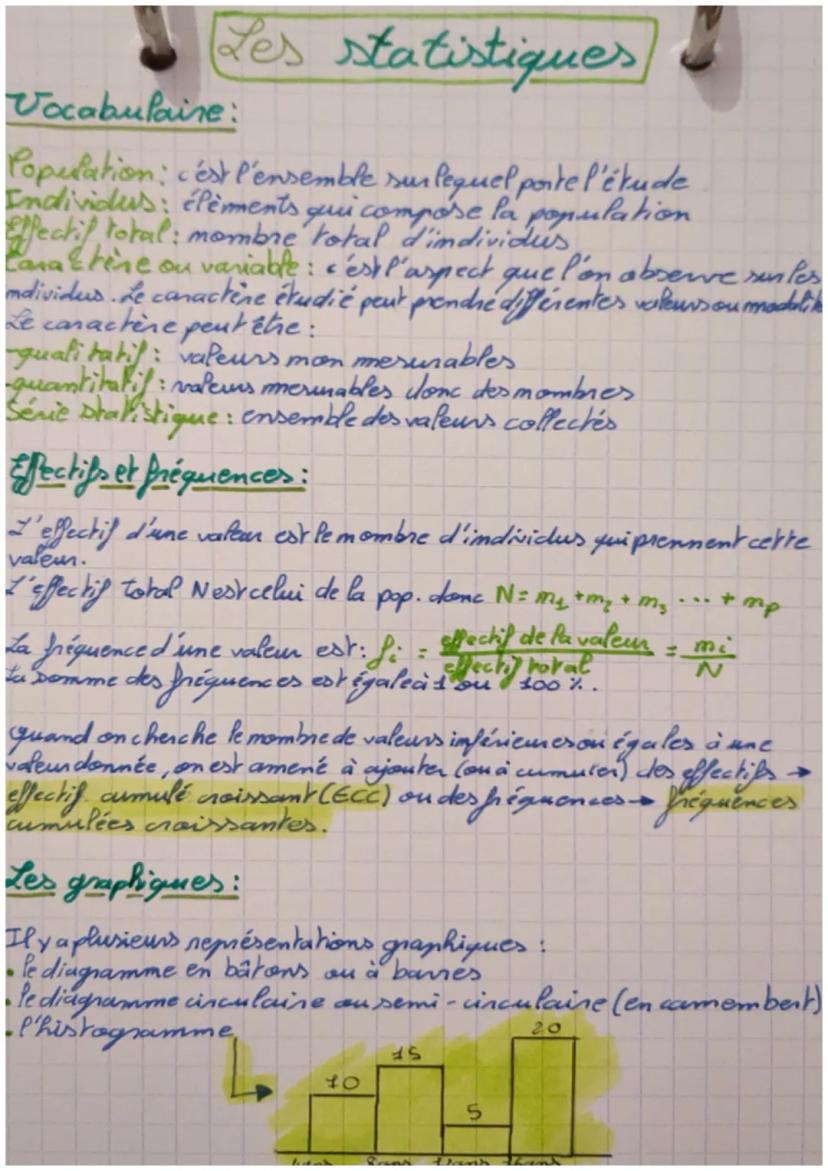 Les statistiques
Vocabulaire :
Population : c'est l'ensemble sur lequel porte l'étude
Individus : élèments qui compose la population
Effectif total : nombre total d'individus
Caractère ou variable : c'est l'aspect que l'on observe sur les
individus. Le caractère étudié peut prendre différentes valeurs ou modalité
Le caractère peut être :
-qualitatif : valeurs non mesurables
-quantitatif : valeurs mesurables donc des nombres
Série statistique : ensemble des valeurs collectés
Effectifs et fréquences :
L'effectif d'une valeur est le nombre d'individus qui prennent cette
valeur.
L'effectif total N est celui de la pop. donc N = n1 + n2 + n3 ... + np
La fréquence d'une valeur est : fi = effectif de la valeur / effectif total = ni / N
La somme des fréquences est égale à 1 ou 100 %.
quand on cherche le nombre de valeurs inférieures ou égales à une
valeur donnée, on est amené à ajouter (ou à cumuler) des effectifs →
effectif cumulé croissant (ECC) ou des fréquences → fréquences
cumulées croissantes.
Les graphiques :
Il y a plusieurs représentations graphiques :
• le diagramme en bâtons ou à barres
• le diagramme circulaire ou semi-circulaire (en camembert)
• l'histogramme
10 15 5 20